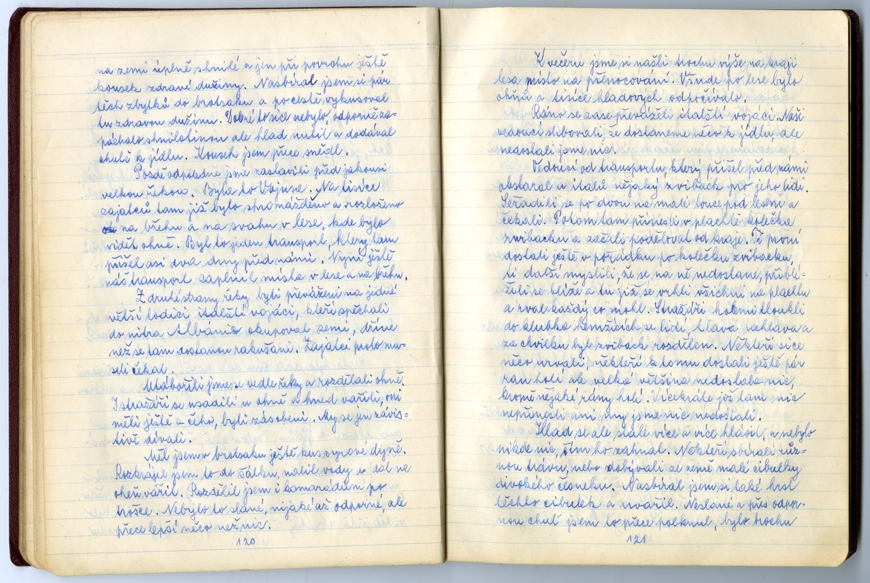 na zemi úplně shnilé a jen při povrchu ještě
kousek zdravé dužiny. Nasbíral jsem si pár
těch zbytků do brotsaku a po cestě vykusoval
tu zdravou dužinu. Dobré to sice nebylo, odporně za-
páchalo shnilotinou ale hlad nutil a dodával
chuti k jídlu. Kousek jsem přece snědl.
Pozdě odpoledne jsme zastavili před jakousi
velkou řekou. Byla to Vojusa. Na tisíce
zajatců tam již bylo shromážděno a rozloženo
na břehu a na svahu v lese, kde bylo
vidět ohně. Byl to jeden transport, který tam
přišel asi dva dny před námi. Nyní ještě
náš transport zaplnil místa v lese a na břehu.
Z druhé strany řeky byli převáženi na jediné
větší lodici italští vojáci, kteří spěchali
do nitra Albánie okupovat zemi, dříve
než se tam dostanou rakušani. Zajatci potom mu-
seli čekat.
Utábořili jsme se vedle řeky a rozdělali ohně.
I strážní se usadili u ohně a hned vařili, oni
měli ještě z čeho, byli zásobeni. My se jen závis-
tivě dívali.
Měl jsem v brotsaku ještě kus syrové dýně.
Rozkrájel jsem to do šálku, nalil vody a dal na
oheň vařit. Rozdělil jsem i kamarádům po
trošce. Nebylo to slané, nijaké až odporné, ale
přece lepší něco než nic.
120
K večeru jsme si našli trochu výše na kraji
lesa místo na přenocování. Všude po lese bylo
ohňů a tisíce hladových odpočívalo.
Ráno se zase převáželi italští vojáci. Naši
vedoucí slibovali, že dostaneme něco k jídlu, ale
nedostali jsme nic.
Vedoucí od transportu, který přišel před námi
obstaral u italů nějaký zvíback pro jeho lidi.
Seřadili se po dvou na malé louce pod lesem a
čekali. Potom tam přinesli v plachtě kolečka
zvibacku a začali podělovat od kraje. Ti první
dostali ještě v pořádku po kolečku zvibacku,
ti další mysleli, že se na ně nedostane, přiblí-
žili se blíže a tu již se vrhli všichni na plachtu
a rval každý co mohl. Strážní holemi tloukli
do klubka hemžících se lidí, hlava nehlava a
za chvilku byl zvíback rozdělen. Někteří sice
něco urvali, někteří k tomu dostali ještě pár
ran holí ale velká většina nedostala nic,
kromě nějaké rány holí. Vícekráte již tam nic
nepřinesli ani my jsme nic nedostali.
Hlad se ale stále více a více hlásil, a nebylo
nikde nic, čím ho zahnat. Někteří sbírali růz-
nou trávu, nebo dobývali ze země malé cibulky
divokého česneku. Nasbíral jsem si také hrst
těchto cibulek a uvařil. Neslané a přes odpor-
nou chuť jsem to přece polknul, bylo trochu
121